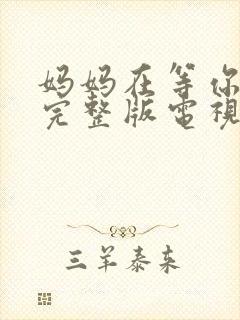 妈妈在等你
完整版電視
三羊泰来